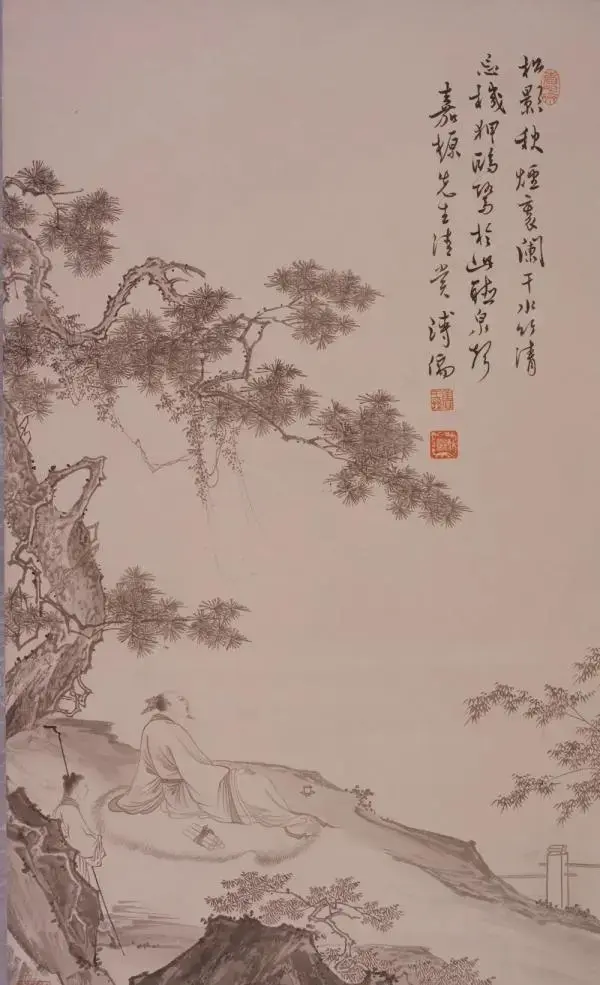 松影秋煙裏闌干水竹清
忘機狎鷗鷺於此聽泉聲
嘉先生清賞 溥儒